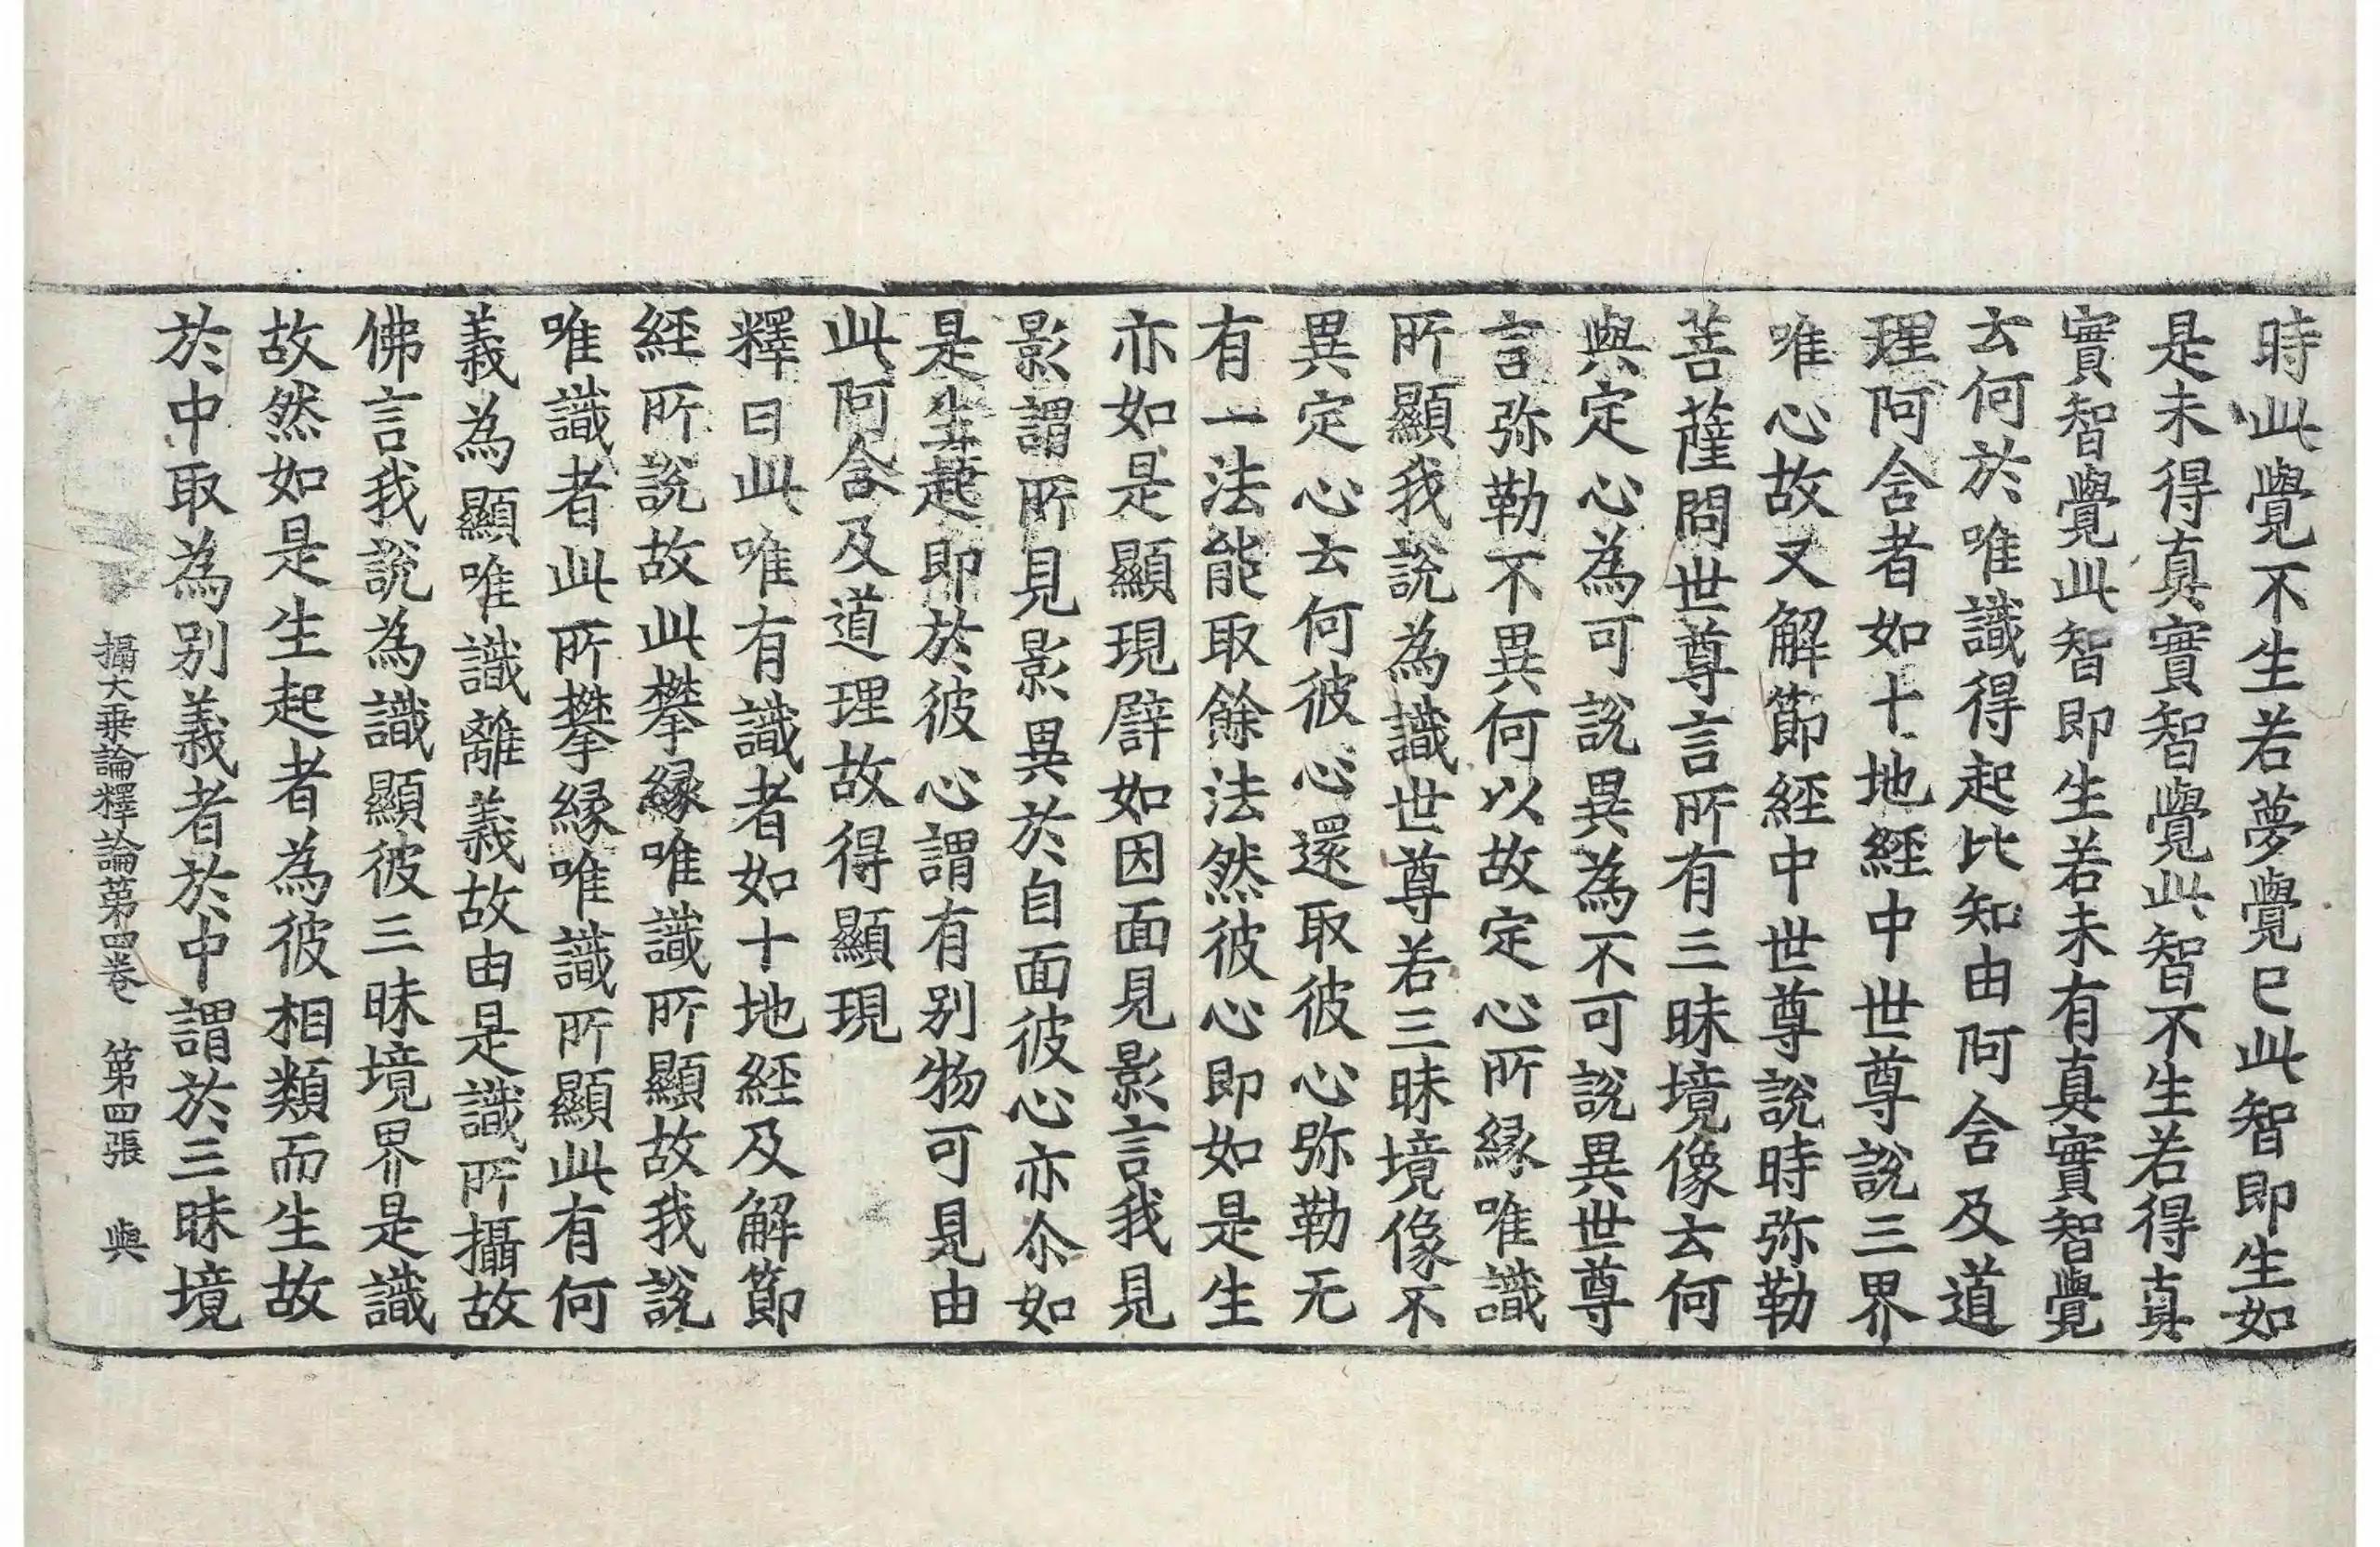 時此覺不生若夢覺已此智即生如
是未得真實智覺此智不生若得真
實智覺此智即生若未有真實智覺
云何於唯識得起比知由阿含及道
理阿含者如十地經中世尊說三界
唯心故又解節經中世尊說時弥勒
菩薩問世尊言所有三昧境像云何
與定心為可說異為不可說異世尊
言弥勒不異何以故定心所縁唯識
所顯我說為識世尊若三昧境像不
異定心云何彼心還取彼心弥勒无
有一法能取餘法然彼心即如是生
亦如是顯現譬如因面見影言我見
影謂所見影異於自面彼心亦尒如
是生起即於彼心謂有別物可見由
此阿含及道理故得顯現
釋曰此唯有識者如十地經及解節
經所說故此攀縁唯識所顯故我說
唯識者此所攀縁唯識所顯此有何
義為顯唯識離義故由是識所攝故
佛言我說為識顯彼三昧境界是識
故然如是生起者為彼相類而生故
於中取為別義者於中謂於三昧境
攝大乗論釋論第四卷 第四張 與